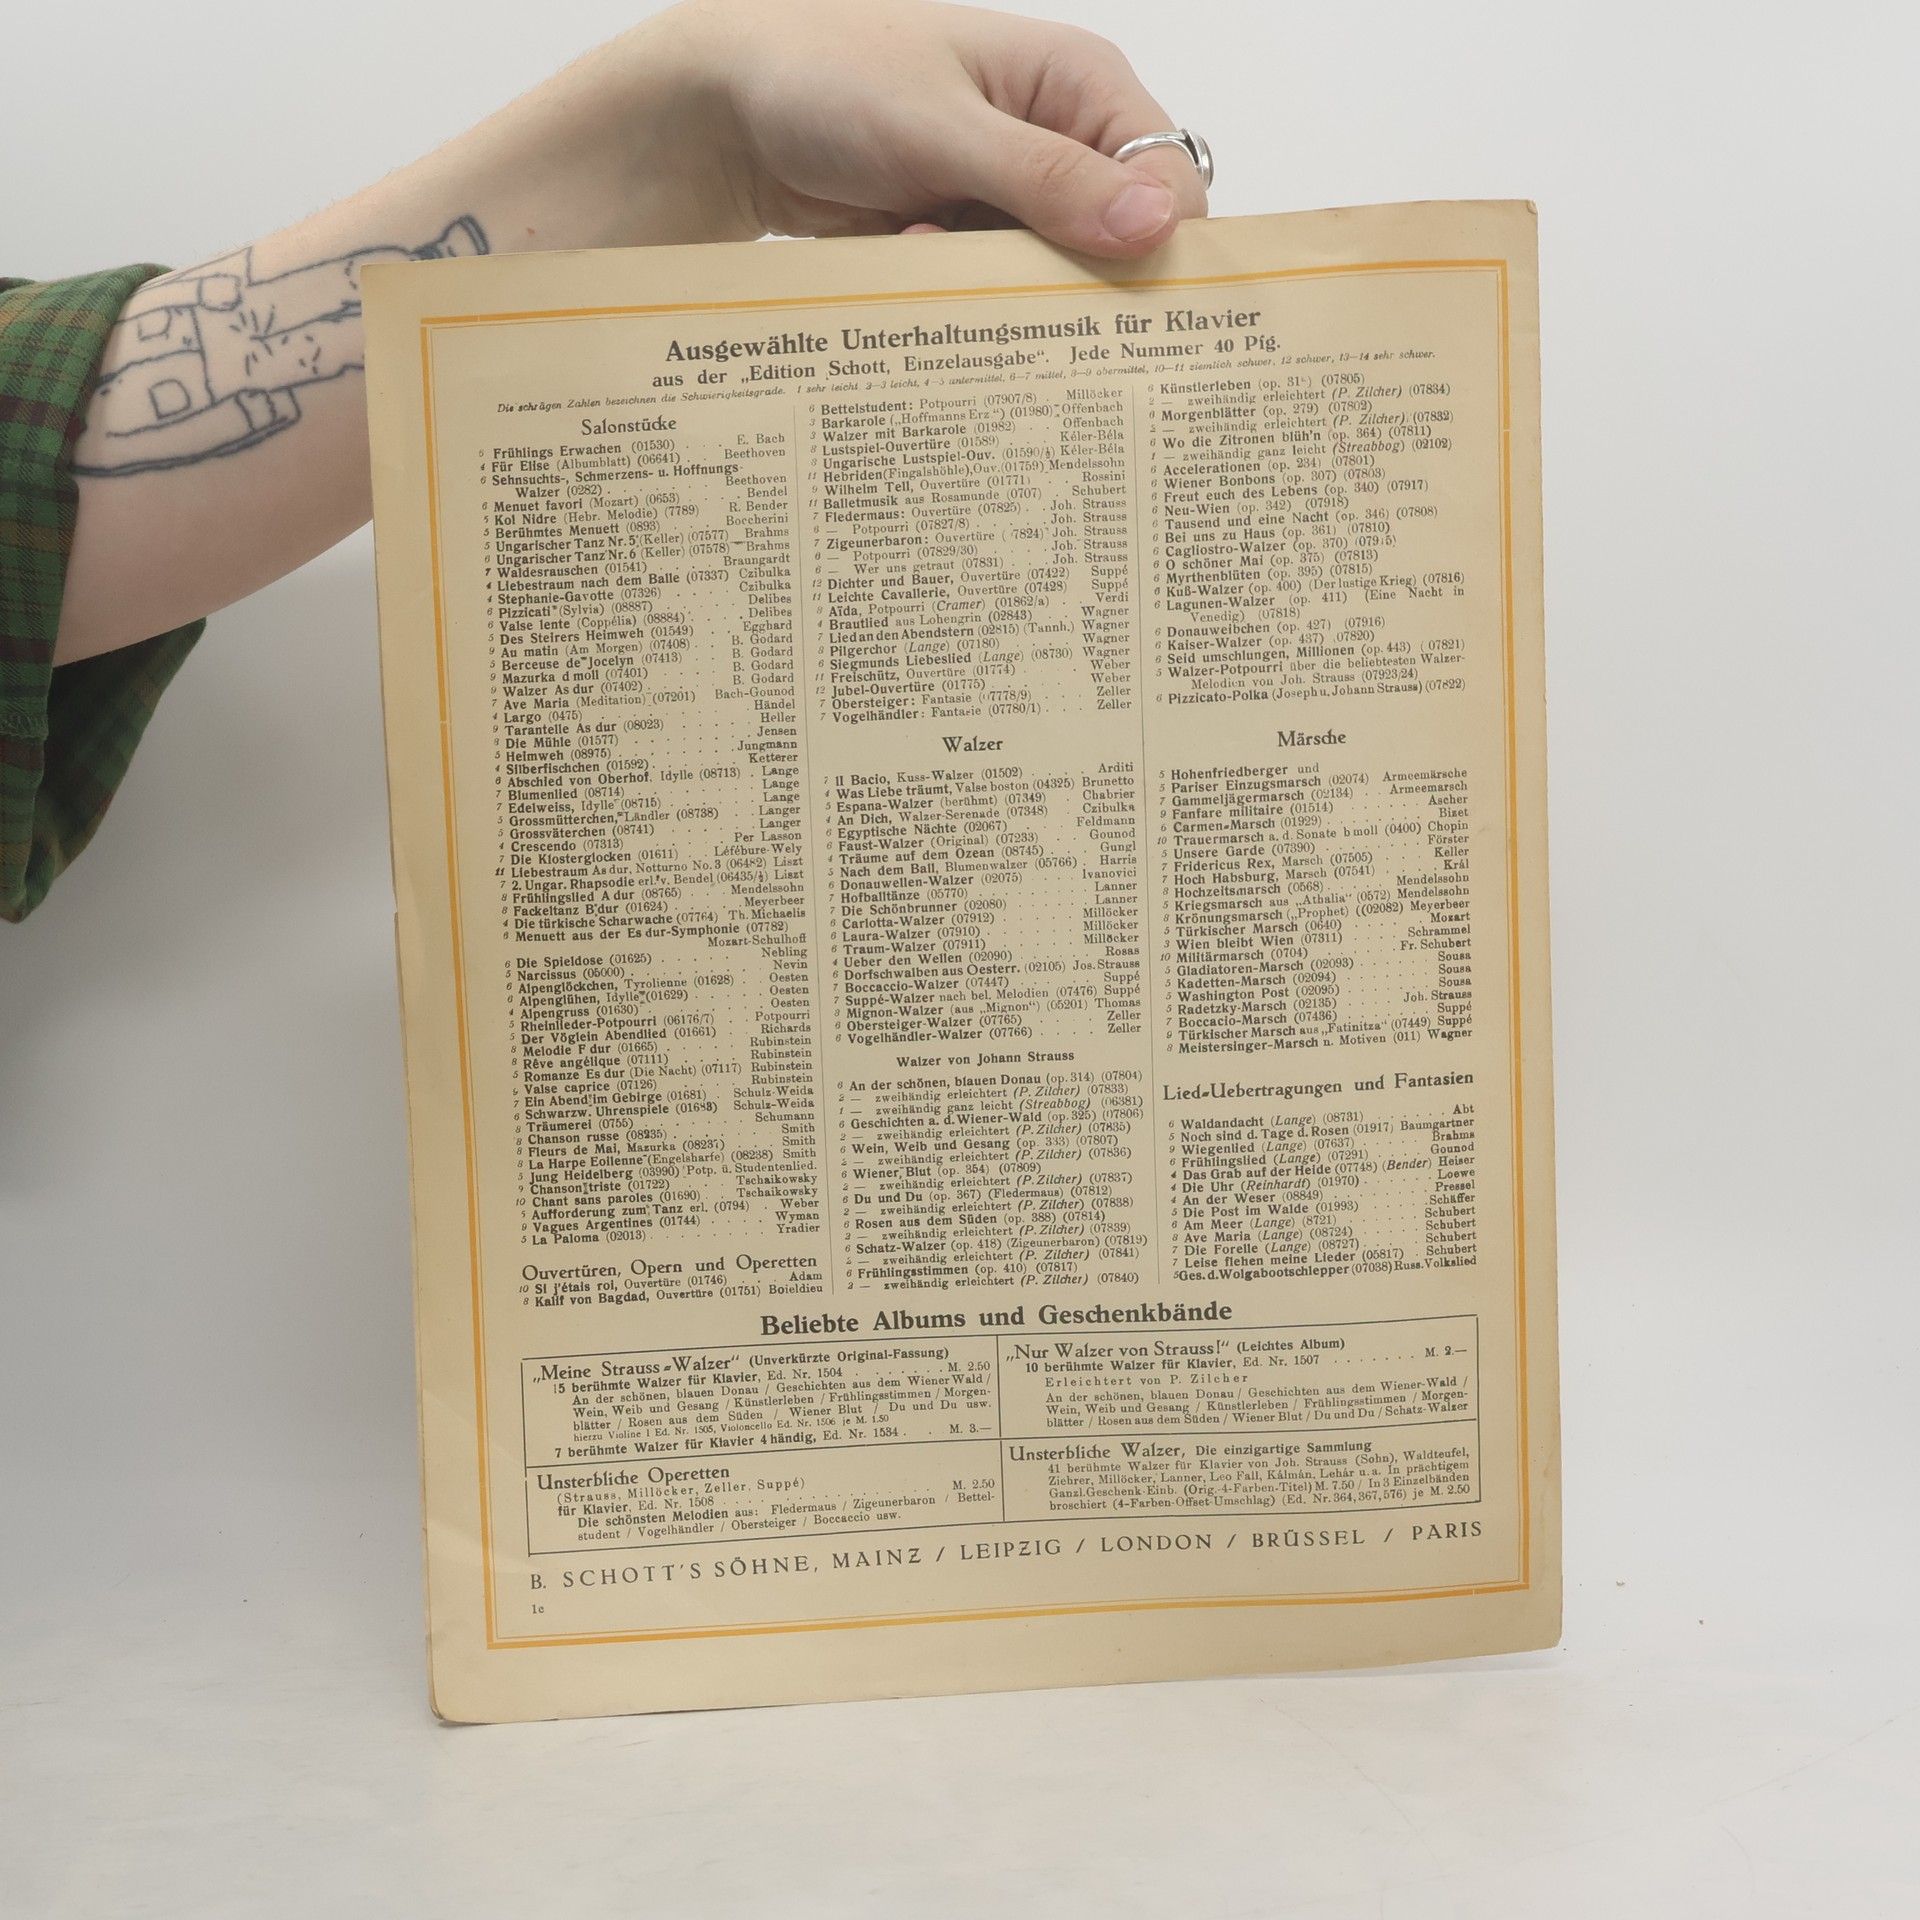 Ausgewählte Unterhaltungsmusik für Klavier
aus der „Edition Schott, Einzelausgabe“. Jede Nummer 40 Pfg.
Die schrägen Zahlen bezeichnen die Schwierigkeitsgrade. 1 sehr leicht, 2—3 leicht, 4—5 untermittel, 6—7 mittel, 8—9 obermittel, 10—11 ziemlich schwer, 12 schwer, 13—14 sehr schwer.
Salonstücke
Frühlings Erwachen (01530) . . . E. Bach
4 Für Elise (Albumblatt) (06641) . . Beethoven
6 Sehnsuchts-, Schmerzens- u. Hoffnungs-
Walzer (0282) . . . Beethoven
6 Menuet favori (Mozart) (0653) . . . Bendel
5 Kol Nidre (Hebr. Melodie) (7789) R. Bender
5 Berühmtes Menuett (0893) . . . Boccherini
5 Ungarischer Tanz Nr. 5 (Keller) (07577) Brahms
6 Ungarischer Tanz Nr. 6 (Keller) (07578) Brahms
7 Waldesrauschen (01541) . . . Braungardt
4 Liebestraum nach dem Balle (07337) Czibulka
4 Stephanie-Gavotte (07326) . . . Czibulka
6 Pizzicati (Sylvia) (08887) . . . Delibes
6 Valse lente (Coppélia) (08884) . . . Delibes
5 Des Steirers Heimweh (01549) . . Egghard
9 Au matin (Am Morgen) (07408) . . B. Godard
5 Berceuse de Jocelyn (07413) . . B. Godard
9 Mazurka d moll (07401) . . . B. Godard
9 Walzer As dur (07402) . . . B. Godard
7 Ave Maria (Meditation) (07201) Bach-Gounod
4 Largo (0475) . . . Händel
9 Tarantelle As dur (08023) . . . Heller
8 Die Mühle (01577) . . . Jensen
5 Heimweh (08975) . . . Jungmann
4 Silberfischchen (01592) . . . Ketterer
6 Abschied von Oberhof, Idylle (08713) . Lange
7 Blumenlied (08714) . . . Lange
7 Edelweiss, Idylle (08715) . . . Lange
5 Grossmütterchen, Ländler (08738) . . Langer
5 Grossväterchen (08741) . . . Langer
4 Crescendo (07313) . . . Per Lasson
7 Die Klosterglocken (01611) . Léfébure-Wely
11 Liebestraum As dur, Notturno No. 3 (06482) Liszt
7 2. Ungar. Rhapsodie erl. v. Bendel (06435/½) Liszt
8 Frühlingslied A dur (08765) . . Mendelssohn
8 Fackeltanz B dur (01624) . . . Meyerbeer
4 Die türkische Scharwache (07764) Th. Michaelis
6 Menuett aus der Es dur-Symphonie (07782)
Mozart-Schulhoff
6 Die Spieldose (01625) . . . Nebling
5 Narcissus (05000) . . . Nevin
6 Alpenglöckchen, Tyrolienne (01628) . Oesten
6 Alpenglühen, Idylle (01629) . . . Oesten
4 Alpengruss (01630) . . . Oesten
5 Rheinlieder-Potpourri (06176/7) . . Potpourri
5 Der Vöglein Abendlied (01661) . . Richards
8 Melodie F dur (01665) . . . Rubinstein
8 Rêve angélique (07111) . . . Rubinstein
5 Romanze Es dur (Die Nacht) (07117) Rubinstein
Valse caprice (07126) . . . Rubinstein
7 Ein Abend im Gebirge (01681) . Schulz-Weida
6 Schwarzw. Uhrenspiele (01683) Schulz-Weida
8 Träumerei (0755) . . . Schumann
8 Chanson russe (08235) . . . Smith
8 Fleurs de Mai, Mazurka (08237) . . Smith
8 La Harpe Eolienne (Engelsharfe) (08238) Smith
5 Jung Heidelberg (03990) Potp. ü. Studentenlied.
9 Chanson triste (01722) . . . Tschaikowsky
10 Chant sans paroles (01690) . . Tschaikowsky
5 Aufforderung zum Tanz erl. (0794) . Weber
9 Vagues Argentines (01744) . . . Wyman
5 La Paloma (02013) . . . Yradier
Ouvertüren, Opern und Operetten
10 Si j'étais roi, Ouvertüre (01746) . . . Adam
8 Kalif von Bagdad, Ouvertüre (01751) Boieldieu
6 Bettelstudent: Potpourri (07907/8) . Millöcker
3 Barkarole („Hoffmanns Erz.“) (01980) Offenbach
3 Walzer mit Barkarole (01982) . . Offenbach
8 Lustspiel-Ouvertüre (01589) . . . Kéler-Béla
8 Ungarische Lustspiel-Ouv. (01590/½) Kéler-Béla
11 Hebriden (Fingalshöhle), Ouv. (01759) Mendelssohn
9 Wilhelm Tell, Ouvertüre (01771) . . Rossini
11 Balletmusik aus Rosamunde (0707) . Schubert
7 Fledermaus: Ouvertüre (07825) . . Joh. Strauss
6 — Potpourri (07827/8) . . . Joh. Strauss
7 Zigeunerbaron: Ouvertüre (7824) Joh. Strauss
6 — Potpourri (07829/30) . . . Joh. Strauss
6 — Wer uns getraut (07831) . . . Joh. Strauss
12 Dichter und Bauer, Ouvertüre (07422) Suppé
11 Leichte Cavallerie, Ouvertüre (07428) Suppé
8 Aïda, Potpourri (Cramer) (01862/a) . . Verdi
4 Brautlied aus Lohengrin (02843) . . Wagner
7 Lied an den Abendstern (02815) (Tannh.) Wagner
8 Pilgerchor (Lange) (07180) . . . Wagner
6 Siegmunds Liebeslied (Lange) (08730) Wagner
11 Freischütz, Ouvertüre (01774) . . . Weber
12 Jubel-Ouvertüre (01775) . . . Weber
7 Obersteiger: Fantasie (07778/9) . . . Zeller
7 Vogelhändler: Fantasie (07780/1) . . . Zeller
Walzer
7 Il Bacio, Kuss-Walzer (01502) . . . Arditi
4 Was Liebe träumt, Valse boston (04325) Brunetto
5 Espana-Walzer (berühmt) (07349) . Chabrier
4 An Dich, Walzer-Serenade (07348) . Czibulka
6 Egyptische Nächte (02067) . . . Feldmann
6 Faust-Walzer (Original) (07233) . . Gounod
4 Träume auf dem Ozean (08745) . . . Gungl
5 Nach dem Ball, Blumenwalzer (05766) . Harris
6 Donauwellen-Walzer (02075) . . . Ivanovici
7 Hofballtänze (05770) . . . Lanner
7 Die Schönbrunner (02080) . . . Lanner
6 Carlotta-Walzer (07912) . . . Millöcker
6 Laura-Walzer (07910) . . . Millöcker
6 Traum-Walzer (07911) . . . Millöcker
4 Ueber den Wellen (02090) . . . Rosas
6 Dorfschwalben aus Oesterr. (02105) Jos. Strauss
7 Boccaccio-Walzer (07447) . . . Suppé
7 Suppé-Walzer nach bel. Melodien (07476) Suppé
8 Mignon-Walzer (aus „Mignon“) (05201) Thomas
6 Obersteiger-Walzer (07765) . . . Zeller
6 Vogelhändler-Walzer (07766) . . . Zeller
Walzer von Johann Strauss
6 An der schönen, blauen Donau (op. 314) (07804)
2 — zweihändig erleichtert (P. Zilcher) (07833)
1 — zweihändig ganz leicht (Streabbog) (06381)
6 Geschichten a. d. Wiener-Wald (op. 325) (07806)
2 — zweihändig erleichtert (P. Zilcher) (07835)
6 Wein, Weib und Gesang (op. 333) (07807)
2 — zweihändig erleichtert (P. Zilcher) (07836)
6 Wiener Blut (op. 354) (07809)
2 — zweihändig erleichtert (P. Zilcher) (07837)
6 Du und Du (op. 367) (Fledermaus) (07812)
2 — zweihändig erleichtert (P. Zilcher) (07838)
6 Rosen aus dem Süden (op. 388) (07814)
2 — zweihändig erleichtert (P. Zilcher) (07839)
6 Schatz-Walzer (op. 418) (Zigeunerbaron) (07819)
2 — zweihändig erleichtert (P. Zilcher) (07841)
6 Frühlingsstimmen (op. 410) (07817)
2 — zweihändig erleichtert (P. Zilcher) (07840)
6 Künstlerleben (op. (07805)
2 — zweihändig erleichtert (P. Zilcher) (07834)
6 Morgenblätter (op. 279) (07802)
2 — zweihändig erleichtert (P. Zilcher) (07832)
6 Wo die Zitronen blüh'n (op. 364) (07811)
1 — zweihändig ganz leicht (Streabbog) (02102)
6 Accelerationen (op. 234) (07801)
6 Wiener Bonbons (op. 307) (07803)
6 Freut euch des Lebens (op. 340) (07917)
6 Neu-Wien (op. 342) (07918)
6 Tausend und eine Nacht (op. 346) (07808)
6 Bei uns zu Haus (op. 361) (07810)
6 Cagliostro-Walzer (op. 370) (07915)
6 O schöner Mai (op. 375) (07813)
6 Myrthenblüten (op. 395) (07815)
6 Kuß-Walzer (op. 400) (Der lustige Krieg) (07816)
6 Lagunen-Walzer (op. 411) (Eine Nacht in
Venedig) (07818)
6 Donauweibchen (op. 427) (07916)
6 Kaiser-Walzer (op. 437) (07820)
6 Seid umschlungen, Millionen (op. 443) (07821)
5 Walzer-Potpourri über die beliebtesten Walzer-
Melodien von Joh. Strauss (07923/24)
6 Pizzicato-Polka (Joseph u. Johann Strauss) (07822)
Märsche
5 Hohenfriedberger und
5 Pariser Einzugsmarsch (02074) Armeemärsche
7 Gammeljägermarsch (02134) . . Armeemarsch
9 Fanfare militaire (01514) . . . Ascher
6 Carmen-Marsch (01929) . . . Bizet
10 Trauermarsch a. d. Sonate b moll (0400) Chopin
5 Unsere Garde (07390) . . . Förster
7 Fridericus Rex, Marsch (07505) . . . Keller
7 Hoch Habsburg, Marsch (07541) . . . Král
8 Hochzeitsmarsch (0568) . . . Mendelssohn
5 Kriegsmarsch aus „Athalia“ (0572) Mendelssohn
8 Krönungsmarsch („Prophet) ((02082) Meyerbeer
5 Türkischer Marsch (0640) . . . Mozart
3 Wien bleibt Wien (07311) . . . Schrammel
10 Militärmarsch (0704) . . . Fr. Schubert
5 Gladiatoren-Marsch (02093) . . . Sousa
5 Kadetten-Marsch (02094) . . . Sousa
5 Washington Post (02095) . . . Sousa
5 Radetzky-Marsch (02135) . . . Joh. Strauss
7 Boccacio-Marsch (07436) . . . Suppé
9 Türkischer Marsch aus „Fatinitza“ (07449) Suppé
8 Meistersinger-Marsch n. Motiven (011) Wagner
Lied-Uebertragungen und Fantasien
6 Waldandacht (Lange) (08731) . . . Abt
5 Noch sind d. Tage d. Rosen (01917) Baumgartner
9 Wiegenlied (Lange) (07637) . . . Brahms
6 Frühlingslied (Lange) (07291) . . . Gounod
4 Das Grab auf der Heide (07748) (Bender) Heiser
4 Die Uhr (Reinhardt) (01970) . . . Loewe
4 An der Weser (08849) . . . Pressel
5 Die Post im Walde (01993) . . . Schäffer
6 Am Meer (Lange) (8721) . . . Schubert
8 Ave Maria (Lange) (08724) . . . Schubert
7 Die Forelle (Lange) (08727) . . . Schubert
7 Leise flehen meine Lieder (05817) . Schubert
5 Ges. d. Wolgabootschlepper (07038) Russ. Volkslied
Beliebte Albums und Geschenkbände
„Meine Strauss-Walzer“ (Unverkürzte Original-Fassung)
15 berühmte Walzer für Klavier, Ed. Nr. 1504 . . . M. 2.50
An der schönen, blauen Donau / Geschichten aus dem Wiener Wald /
Wein, Weib und Gesang / Künstlerleben / Frühlingsstimmen / Morgen-
blätter / Rosen aus dem Süden / Wiener Blut / Du und Du usw.
hierzu Violine I Ed. Nr. 1505, Violoncello Ed. Nr. 1506 je M. 1.50
7 berühmte Walzer für Klavier 4 händig, Ed. Nr. 1534 . . M. 3.—
„Nur Walzer von Strauss!“ (Leichtes Album)
10 berühmte Walzer für Klavier, Ed. Nr. 1507 . . . M. 2.—
Erleichtert von P. Zilcher
An der schönen, blauen Donau / Geschichten aus dem Wiener-Wald /
Wein, Weib und Gesang / Künstlerleben / Frühlingsstimmen / Morgen-
blätter / Rosen aus dem Süden / Wiener Blut / Du und Du / Schatz-Walzer
Unsterbliche Operetten
(Strauss, Millöcker, Zeller, Suppé)
für Klavier, Ed. Nr. 1508 . . . M. 2.50
Die schönsten Melodien aus: Fledermaus / Zigeunerbaron / Bettel-
student / Vogelhändler / Obersteiger / Boccaccio usw.
Unsterbliche Walzer, Die einzigartige Sammlung
41 berühmte Walzer für Klavier von Joh. Strauss (Sohn), Waldteufel,
Ziehrer, Millöcker, Lanner, Leo Fall, Kálmán, Lehár u. a. In prächtigem
Ganzl. Geschenk-Einb. (Orig.-4-Farben-Titel) M. 7.50 / In 3 Einzelbänden
broschiert (4-Farben-Offset-Umschlag) (Ed. Nr. 364, 367, 576) je M. 2.50
B. SCHOTT'S SÖHNE, MAINZ / LEIPZIG / LONDON / BRÜSSEL / PARIS
1c